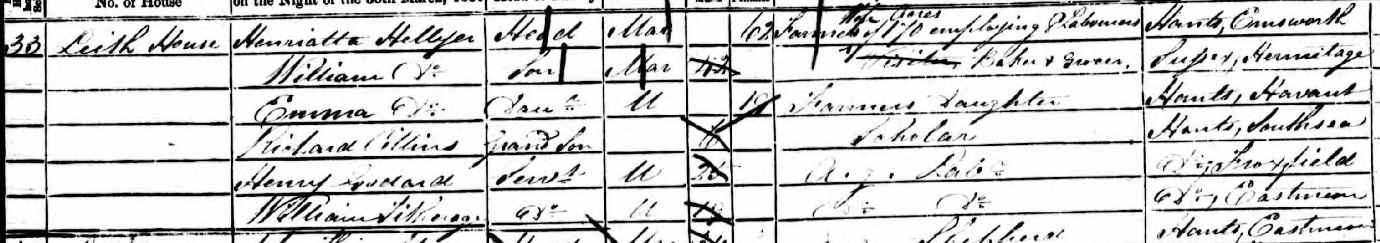 No. of House on the Night of the 30th March,
33 Leith House Henrietta Hellyer Head Mar 62 Farmer's Wife of 170 Acres employing 8 Labourers Hants, Emsworth
William Do Son Mar 42 Visitor Baker & Grocer, Sussex, Hermitage
Emma Do Daur U 19 Farmers Daughter Hants, Havant
Richard Collins Grand Son Scholar Hants, Southsea
Henry Godard Servt U Ag. Labr Do, Froxfield
William Do U Do Do Do, Eastmeon
Shepherd Hants, Eastmeon